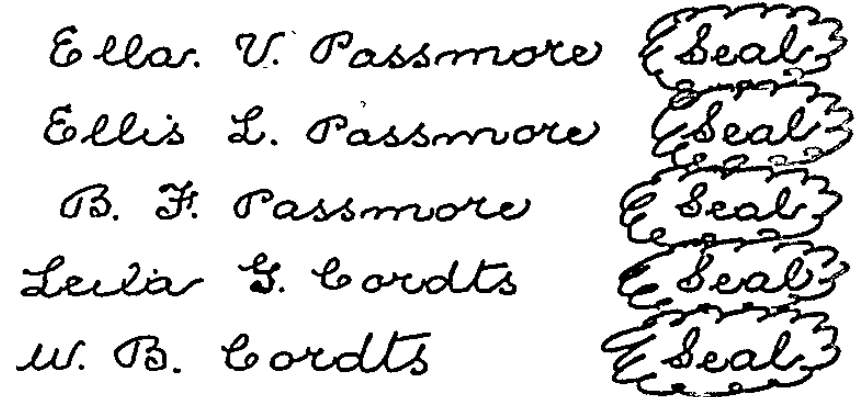 Ella. V. Passmore Seal
Ellis L. Passmore Seal
B. F. Passmore Seal
Leila G. Cordts Seal
W. B. Cordts Seal